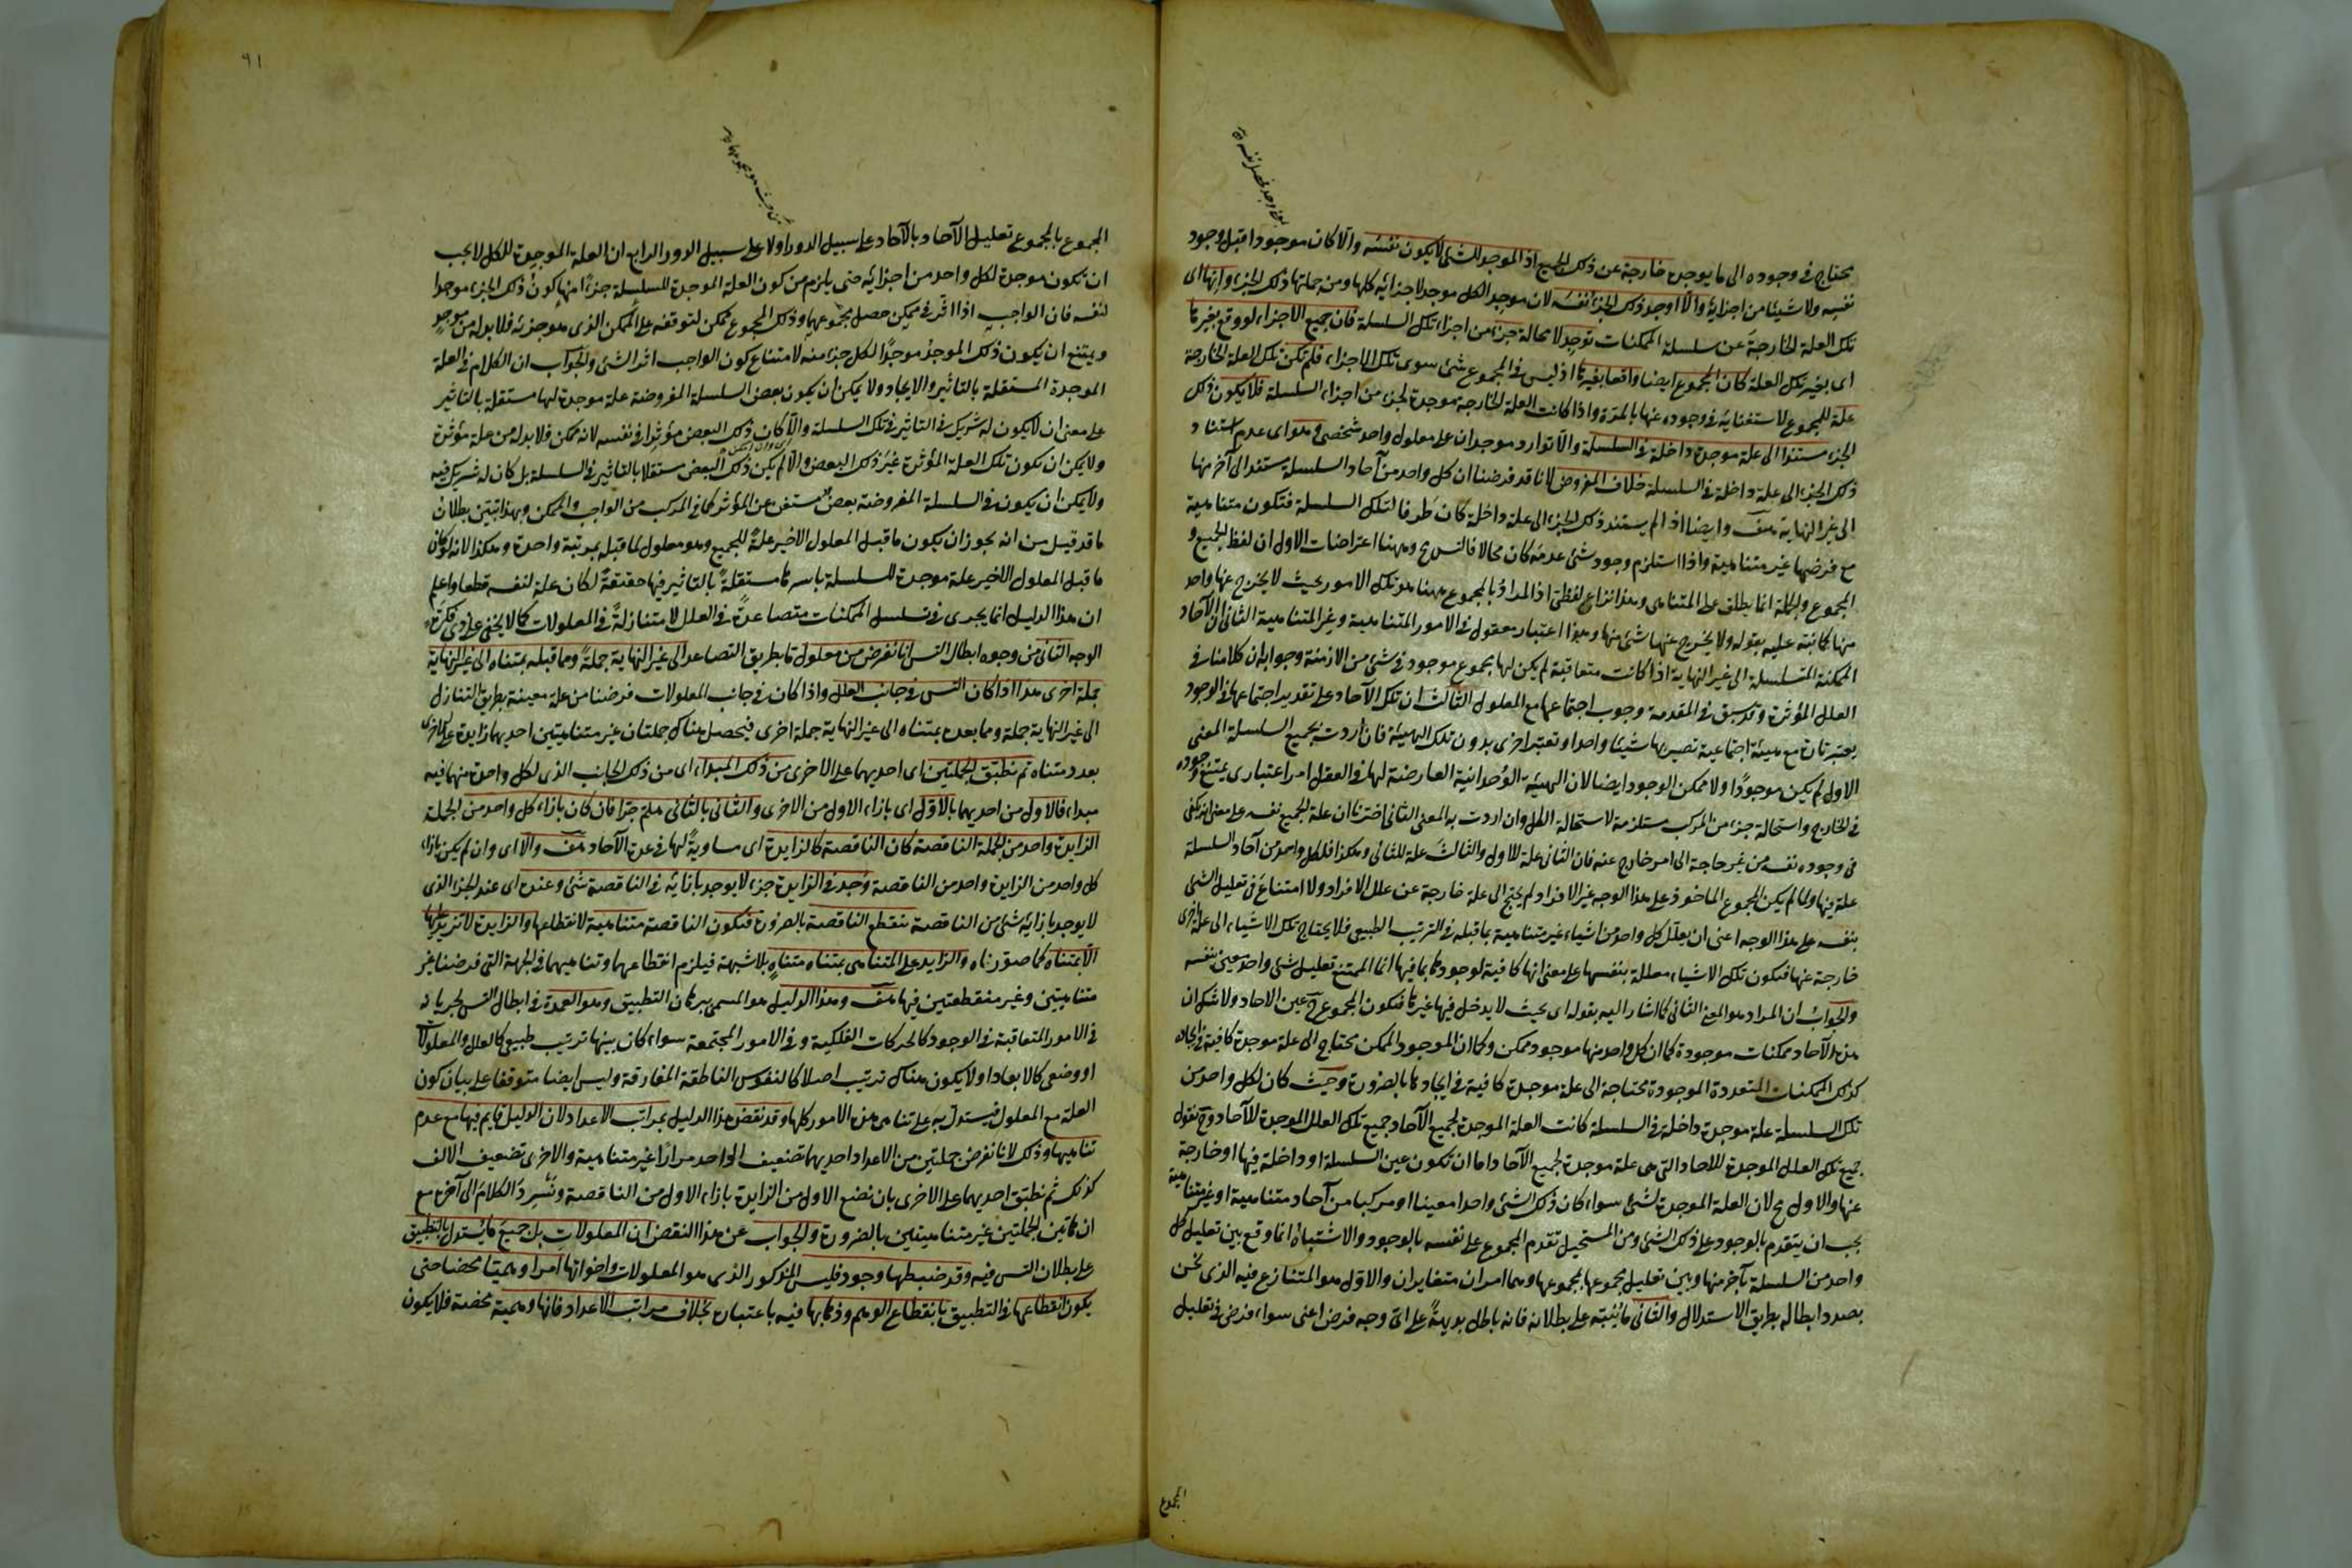 يحتاج في وجوده الى ما يوجده خارجة عن ذلك الجميع اذ الموجد للشئ لا يكون نفسه والّا كان موجودا قبل وجود
نفسه ولا شيئا من اجزائه والّا اوجد ذلك الجزء نفسه لان موجد الكل موجد لاجزائه كلها ومن جملتها ذلك الجزء وانها اى
تلك العلة الخارجة عن سلسلة الممكنات توجد لا محالة جزء من اجزاء تلك السلسلة فان جميع الاجزاء لو وقع بغيرها
اى بغير تلك العلة كان المجموع ايضا واقعا بغيرها اذ ليس في المجموع شئ سوى تلك الاجزاء فلم تكن تلك العلة الخارجة
علة للمجموع لاستغنائه في وجوده عنها بالمرة واذا كانت العلة الخارجة موجدة لجزء من اجزاء السلسلة فلا يكون ذلك
الجزء مستندا الى علة موجدة داخلة في السلسلة والّا توارد موجدان على معلول واحد شخصى وهو اى عدم استناد
ذلك الجزء الى علة داخلة في السلسلة خلاف المفروض لانا قد فرضنا ان كل واحد من آحاد السلسلة مستند الى آخر منها
الى غير النهاية هف وايضا اذا لم يستند ذلك الجزء الى علة داخلة كان طرفا لتلك السلسلة فتكون متناهية
مع فرضها غير متناهية واذا استلزم وجود شئ عدمه كان محالا فالتس مح وههنا اعتراضات الاول ان لفظ الجميع و
المجموع والجملة انما يطلق على المتناهى وهذا نزاع لفظى اذ المراد بالمجموع ههنا هو تلك الامور بحيث لا يخرج عنها واحد
منها كما نبه عليه بقوله ولا يخرج عنها شئ منها وهذا اعتبار معقول في الامور المتناهية وغير المتناهية الثانى ان الآحاد
الممكنة المتسلسلة الى غير النهاية اذا كانت متعاقبة لم يكن لها مجموع موجود في شئ من الازمنة وجوابه ان كلامنا في
العلل المؤثرة وقد سبق في المقدمة وجوب اجتماعها مع المعلول الثالث ان تلك الآحاد على تقدير اجتماعها في الوجود
يعتبر تارة مع هيئة اجتماعية تصير بها شيئا واحدا وتعتبر اخرى بدون تلك الهيئة فان اردت بجميع السلسلة المعنى
الاول لم يكن موجودًا ولا ممكن الوجود ايضا لان الهيئة الوحدانية العارضة لها في العقل امر اعتبارى يمتنع وجوده
في الخارج واستحالة جزء من المركب مستلزمة لاستحالة الكل وان اردت به المعنى الثانى اخترنا ان علة الجميع نفسه على معنى انه يكفى
في وجوده نفسه من غير حاجة الى امر خارج عنه فان الثانى علة للاول والثالث علة للثانى وهكذا فلكل واحد من آحاد السلسلة
علة فيها ولما لم يكن المجموع الماخوذ على هذا الوجه غير الافراد لم يحتج الى علة خارجة عن علل الافراد ولا امتناع في تعليل الشئ
بنفسه على هذا الوجه اعنى ان يعلّل كل واحد من اشياء غير متناهية بما قبله في الترتيب الطبيعى فلا يحتاج تلك الاشياء الى علة اخرى
خارجة عنها فتكون تلك الاشياء معللة بنفسها على معنى انها كافية لوجودها بما فيها انما الممتنع تعليل شئ واحد معين بنفسه
والجواب ان المراد هو المعنى الثانى كما اشار اليه بقوله اى بحيث لا يدخل فيها غيرها فتكون المجموع ح عين الآحاد ولا شك ان
هذه الآحاد ممكنات موجودة كما ان كل واحد منها موجود ممكن وكما ان الموجود الممكن يحتاج الى علة موجدة كافية في ايجاده
كذلك الممكنات المتعددة الموجودة محتاجة الى علة موجدة كافية في ايجادها بالضرورة وحيث كان لكل واحد من
تلك السلسلة علة موجدة داخلة في السلسلة كانت العلة الموجدة لجميع الآحاد جميع تلك العلل الموجدة للآحاد وح نقول
جميع تلك العلل الموجدة للاحاد التى هى علة موجدة لجميع الآحاد اما ان تكون عين السلسلة او داخلة فيها او خارجة
عنها والاول مح لان العلة الموجدة لشئ سواء كان ذلك الشئ واحدا معينا او مركبا من آحاد متناهية او غير متناهية
يجب ان يتقدم بالوجود على ذلك الشئ ومن المستحيل تقدم المجموع على نفسه بالوجود والاشتباه انما وقع بين تعليل كل
واحد من السلسلة بآخر منها وبين تعليل مجموعها بمجموعها وهما امران متغايران والاول هو المتنازع فيه الذى نحن
بصدد ابطاله بطريق الاستدلال والثانى ما ننبه على بطلانه فانه باطل بديهة على اى وجه فرض اعنى سواء فرض في تعليل
المجموع
٩١
المجموع بالمجموع تعليل الآحاد بالآحاد على سبيل الدور اولا على سبيل الدور الرابع ان العلة الموجدة للكل لا يجب
ان تكون موجدة لكل واحد من اجزائه حتى يلزم من كون العلة الموجدة للسلسلة جزءًا منها كون ذلك الجزء موجدا
لنفسه فان الواجب اذا اثر في ممكن حصل مجموعهما وذلك المجموع ممكن لتوقفه على الممكن الذى هو جزئه فلا بد له من موجد
ويمتنع ان يكون ذلك الموجد موجدًا لكل جزء منه لامتناع كون الواجب اثر الشئ والجواب ان الكلام في العلة
الموجدة المستقلة بالتاثير والايجاد ولا يمكن ان يكون بعض السلسلة المفروضة علة موجدة لها مستقلة بالتاثير
على معنى ان لا يكون له شريك في التاثير في تلك السلسلة والّا كان ذلك البعض مؤثرا في نفسه لانه ممكن فلا بد له من علة مؤثرة
ولا يمكن ان تكون تلك العلة المؤثرة غير ذلك البعض والّا لم يكن ذلك البعض مستقلا بالتاثير في السلسلة بل كان له شريك فيه
ولا يمكن ان يكون في السلسلة المفروضة بعض مستغن عن المؤثر كما في المركب من الواجب والممكن وبهذا تبين بطلان
ما قد قيل من انه يجوز ان يكون ما قبل المعلول الاخير علة للجميع وهو معلول لما قبله بمرتبة واحدة وهكذا لانه لو كان
ما قبل المعلول الاخير علة موجدة للسلسلة باسرها مستقلة بالتاثير فيها حقيقة لكان علة لنفسه قطعا واعلم
ان هذا الدليل انما يجرى في تسلسل الممكنات متصاعدة في العلل لا متنازلة في المعلولات كما لا يخفى على ذى فكرة
الوجه الثانى من وجوه ابطال التس انا نفرض من معلول ما بطريق التصاعد الى غير النهاية جملة ومما قبله بمتناه الى غير النهاية
جملة اخرى هذا اذا كان التس في جانب العلل واذا كان في جانب المعلولات فرضنا من علة معينة بطريق التنازل
الى غير النهاية جملة ومما بعده بمتناه الى غير النهاية جملة اخرى فيحصل هناك جملتان غير متناهيتين احديهما زايدة على الاخرى
بعدد متناه ثم نطبق الجملتين اى احديهما على الاخرى من ذلك المبداء اى من ذلك الجانب الذى لكل واحدة منهما فيه
مبداء فالاول من احديهما بالاول اى بازاء الاول من الاخرى والثانى بالثانى وهلم جرّا فان كان بازاء كل واحد من الجملة
الزايدة واحد من الجملة الناقصة كان الناقصة كالزايدة اى مساوية لها في عدة الآحاد هف والّا اى وان لم يكن بازاء
كل واحد من الزايدة واحد من الناقصة وُجد في الزايدة جزء لا يوجد بازائه في الناقصة شئ وعنده اى عند الجزء الذى
لا يوجد بازائه شئ من الناقصة تنقطع الناقصة بالضرورة فتكون الناقصة متناهية لانقطاعها والزايدة لا تزيد عليها
الّا بمتناه كما صوّرناه والزايد على المتناهى بمتناه متناهٍ بلا شبهة فيلزم انقطاعهما وتناهيهما في الجهة التى فرضنا غير
متناهيتين وغير منقطعتين فيها هف وهذا الدليل هو المسمى ببرهان التطبيق وهو العمدة في ابطال التس لجريانه
في الامور المتعاقبة في الوجود كالحركات الفلكية وفي الامور المجتمعة سواء كان بينها ترتيب طبيعى كالعلل والمعلولات
او وضعى كالابعاد او لا يكون هناك ترتيب اصلا كالنفوس الناطقة المفارقة وليس ايضا متوقفا على بيان كون
العلة مع المعلول فيستدل به على تناهى هذه الامور كلها وقد نقض هذا الدليل بمراتب الاعداد لان الدليل قايم فيها مع عدم
تناهيها وذلك لانا نفرض جملتين من الاعداد احديهما تضعيف الواحد مرارًا غير متناهية والاخرى تضعيف الالف
كذلك ثم نطبق احديهما على الاخرى بان نضع الاول من الزايدة بازاء الاول من الناقصة ونسرد الكلام الى آخره مع
ان هاتين الجملتين غير متناهيتين بالضرورة والجواب عن هذا النقض ان المعلولات بل جميع ما يستدل بالتطبيق
على بطلان التس فيه وقد ضبطها وجود فليس المذكور الذى هو المعلولات واخواتها امرا وهميا محضا حتى
يكون انقطاعها في التطبيق بانقطاع الوهم وذهابها فيه باعتباره بخلاف مراتب الاعداد فانها وهمية محضة فلا يكون